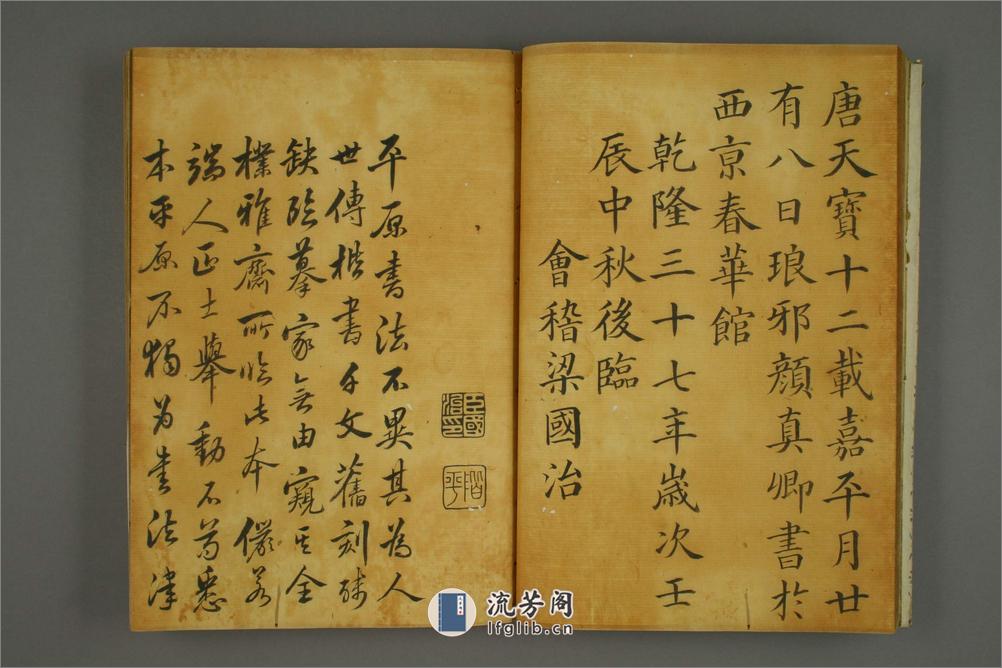 唐天寶十二載嘉平月廿
有八日琅邪顏真卿書於
西京春華館
乾隆三十七年歲次壬
辰中秋後臨
會稽梁國治
臣國治印
階平
平原書法不異其為人
世傳楷書千文舊刻殘
缺臨摹家無由窺其全
樸雅齋所臨此本儼若
端人正士舉動不苟悉
本平原不獨為書法津
流芳阁
lfglib.cn